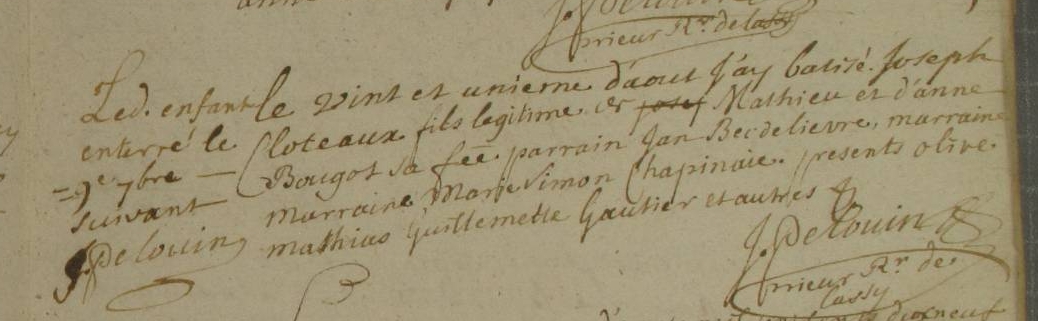 prieur Rr. de lassy
Led. enfant
enterré le
=9e 7bre —
suivant
J. Delouin
le vint et unieme d'aout J'ay batisé. Joseph
Cloteaux fils legitime de josef Mathieu et d'anne
Bougot sa fēe parrain Jan Becdelievre, marraine
marraine Marie Simon Chapinaie. presents olive.
mathias Guillemette Gautier et autres
J. Delouin
prieur Rr. de.
lassy